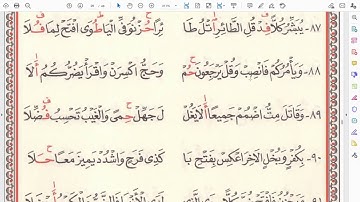 ٨٧- يُبَشِّرُ كُلًّا فِدْ قُلِ الطَّائِرِ اتْلُ طَا ئِرًا حُزْ نُوَفِّي الْيَا طُوًى افْتَحْ لِمَا فُلَا
٨٨- وَيَأْمُرُكُمْ فَانْصِبْ وَقُلْ يَرْجِعُونَ حُمْ وَحَجُّ اكْسِرَنْ وَاقْرَأْ يَضُرُّكُمُ أَلَا
٨٩- وَقَاتَلَ مِتُّ اضْمُمْ جَمِيعًا أَلَا يَغُلْ لَ جَهِّلْ حِمًى وَالْغَيْبُ تَحْسَبُ فُضِّلَا
٩٠- بِكُفْرٍ وَبُخْلِ الْآخِرَ اعْكِسْ بِفَتْحِ بَا كَذِي فَرَحٍ وَاشْدُدْ يَمِيزَ مَعًا حَلَا